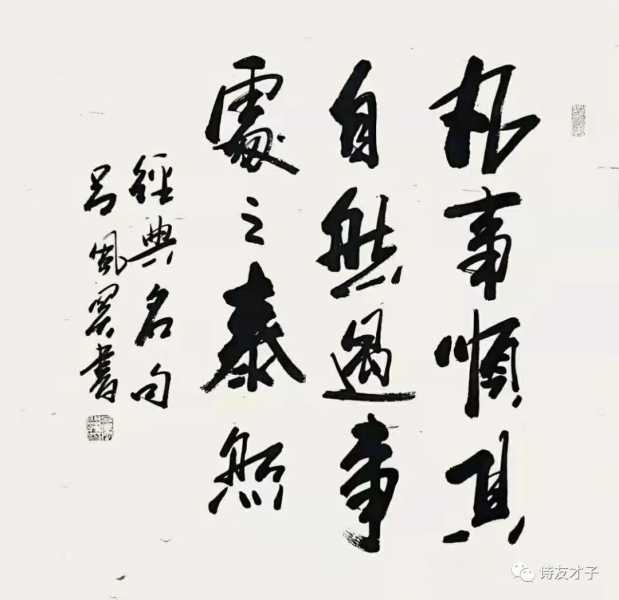 凡事順其
自然遇事
處之泰然
經典名句
吕風書
诗友才子